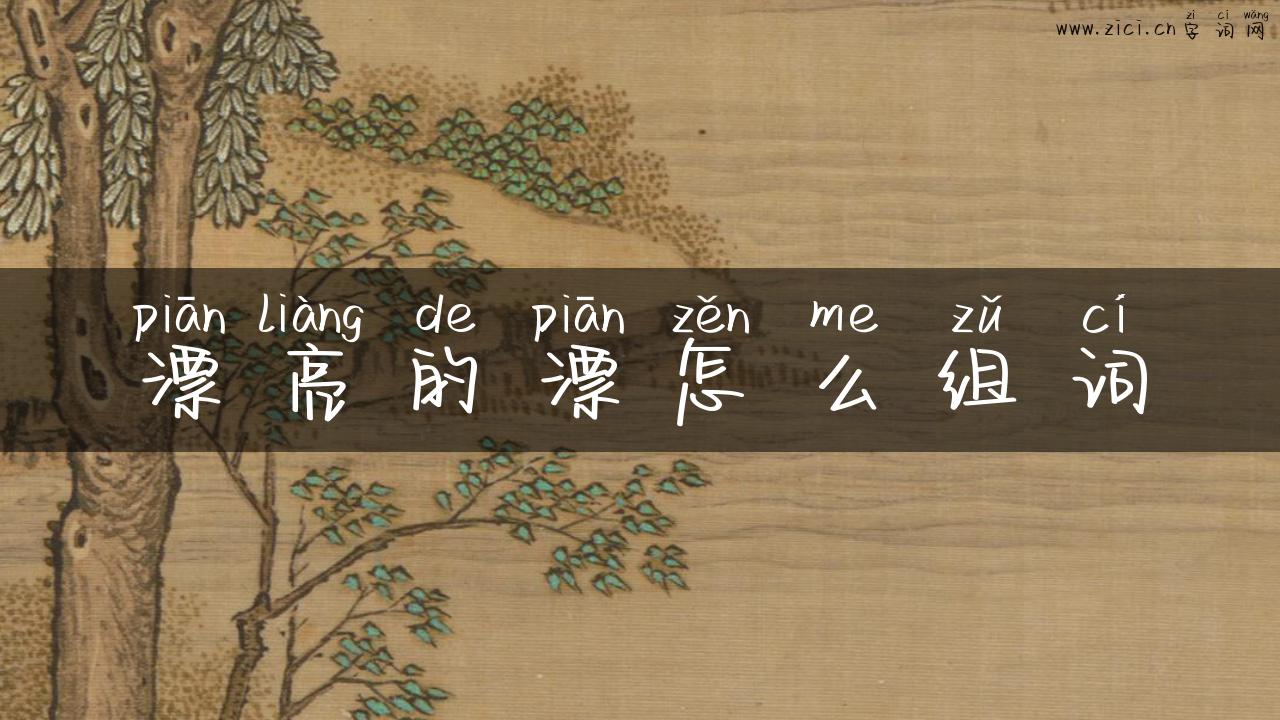 zì cí wǎng
www.zici.cn 字词网
piān liàng de piān zěn me zǔ cí
漂亮的漂怎么组词